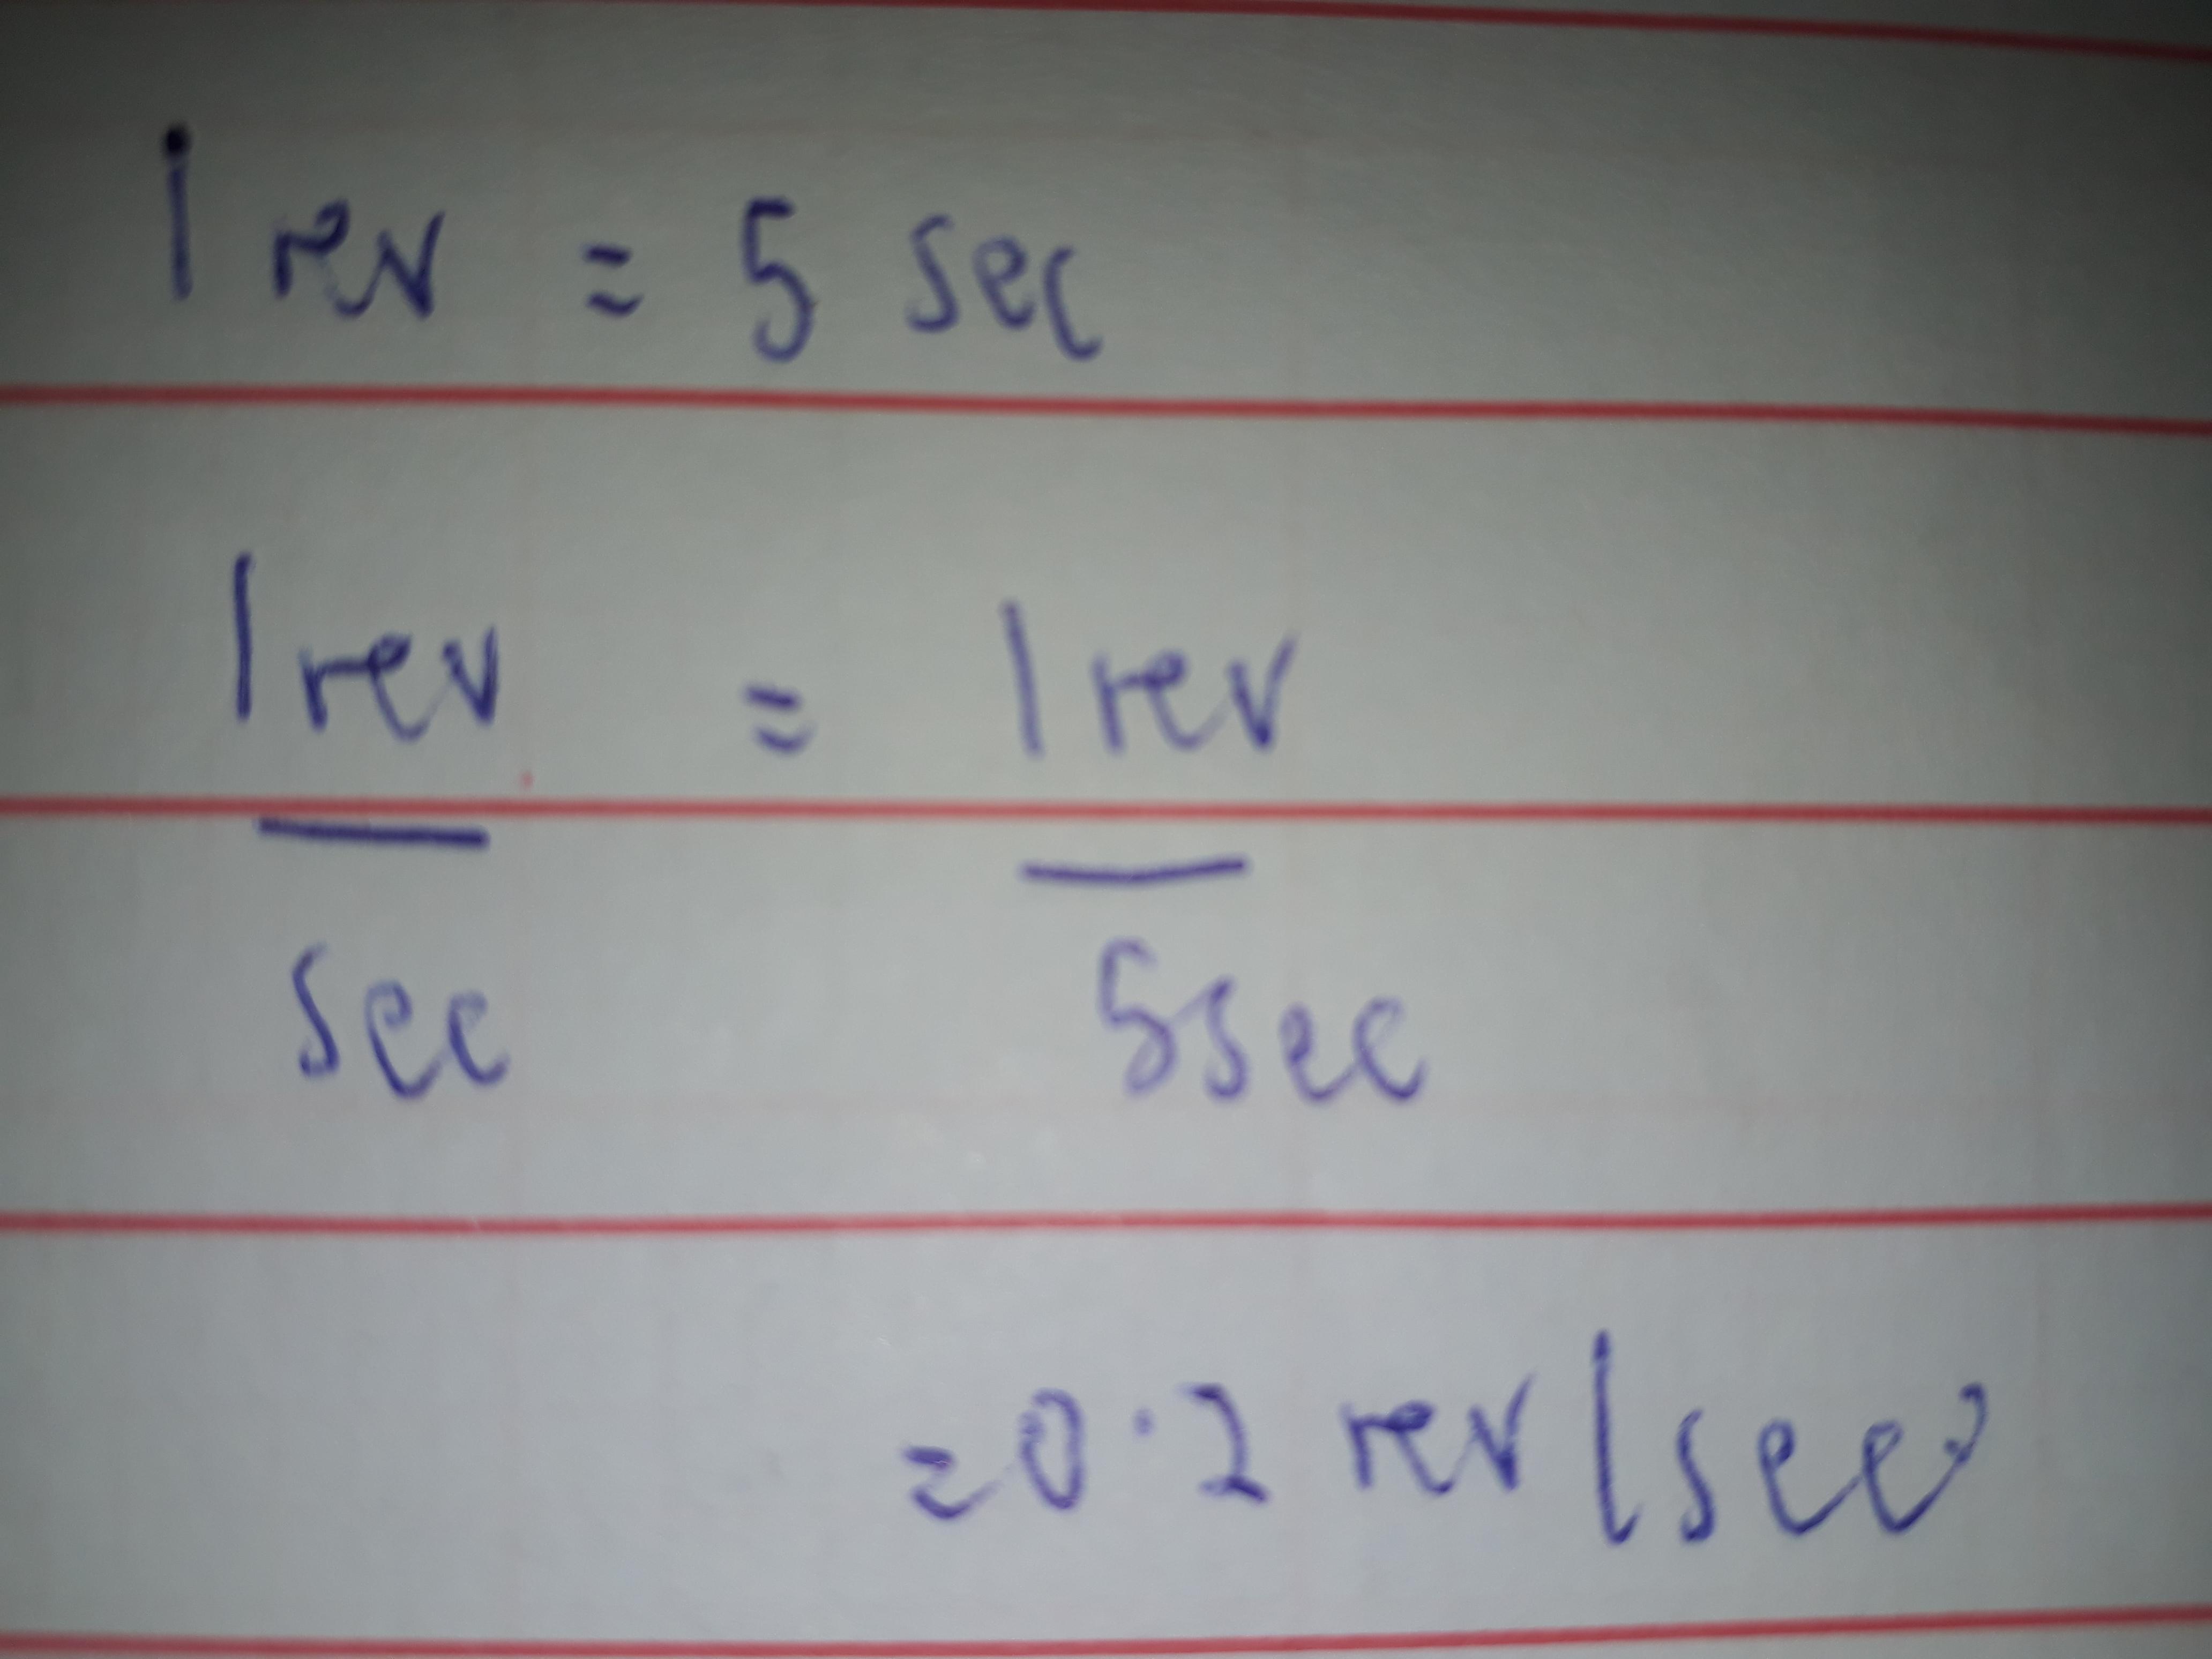 1 rev = 5 sec
1 rev = 1 rev
sec 5sec
=0.2 rev/sec